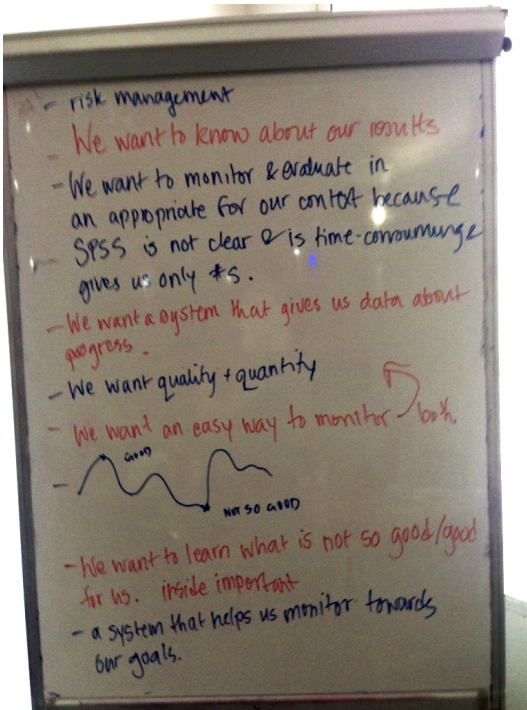 - risk management
- We want to know about our results
- We want to monitor & evaluate in
an appropriate for our context because
SPSS is not clear & is time-consuming &
gives us only #s.
- We want a system that gives us data about
progress.
- We want quality + quantity
- We want an easy way to monitor both.
GOOD
-
NOT SO GOOD
- We want to learn what is not so good/good
for us. inside important
- a system that helps us monitor towards
our goals.